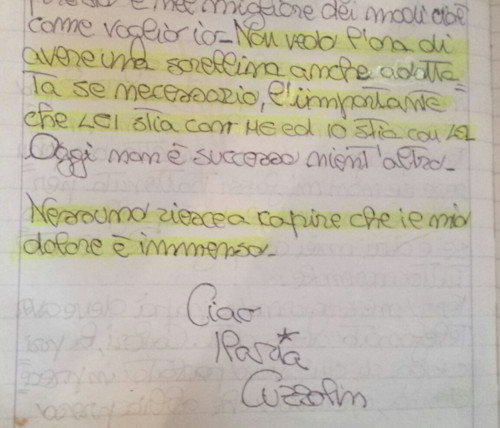 è nel migliore dei modi cioè
come voglio io- Non vedo l'ora di
avere una sorellina anche adotta=
ta se necessario, l'importante
che LEI stia con ME ed IO stia con LEI
Oggi non è successo nient'altro-
Nessuno riesce a capire che il mio
dolore è immenso-
Ciao